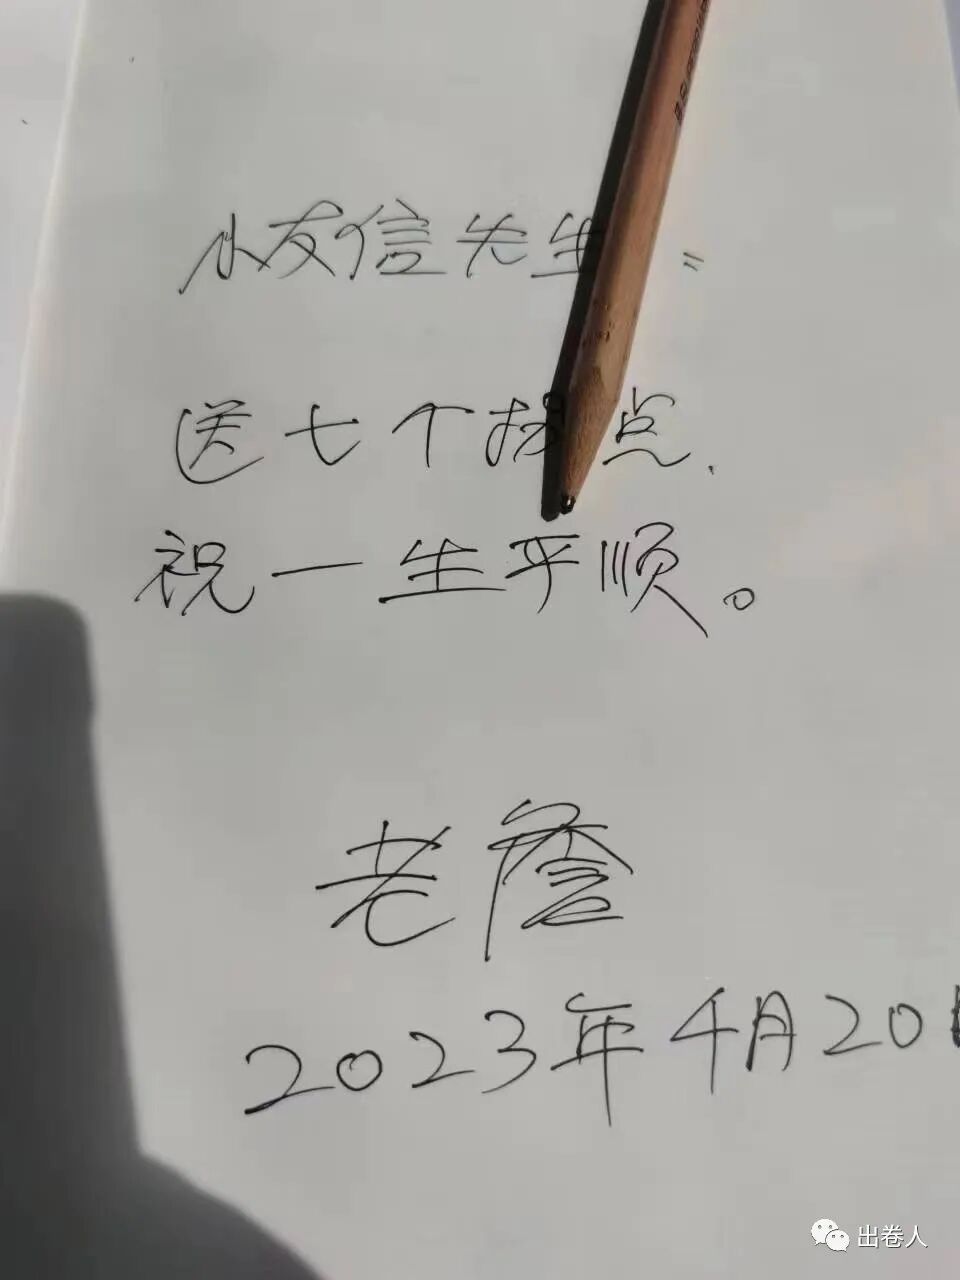 小友信先生：
送七个拐点，
祝一生平顺。
老詹
2023年4月20
出卷人